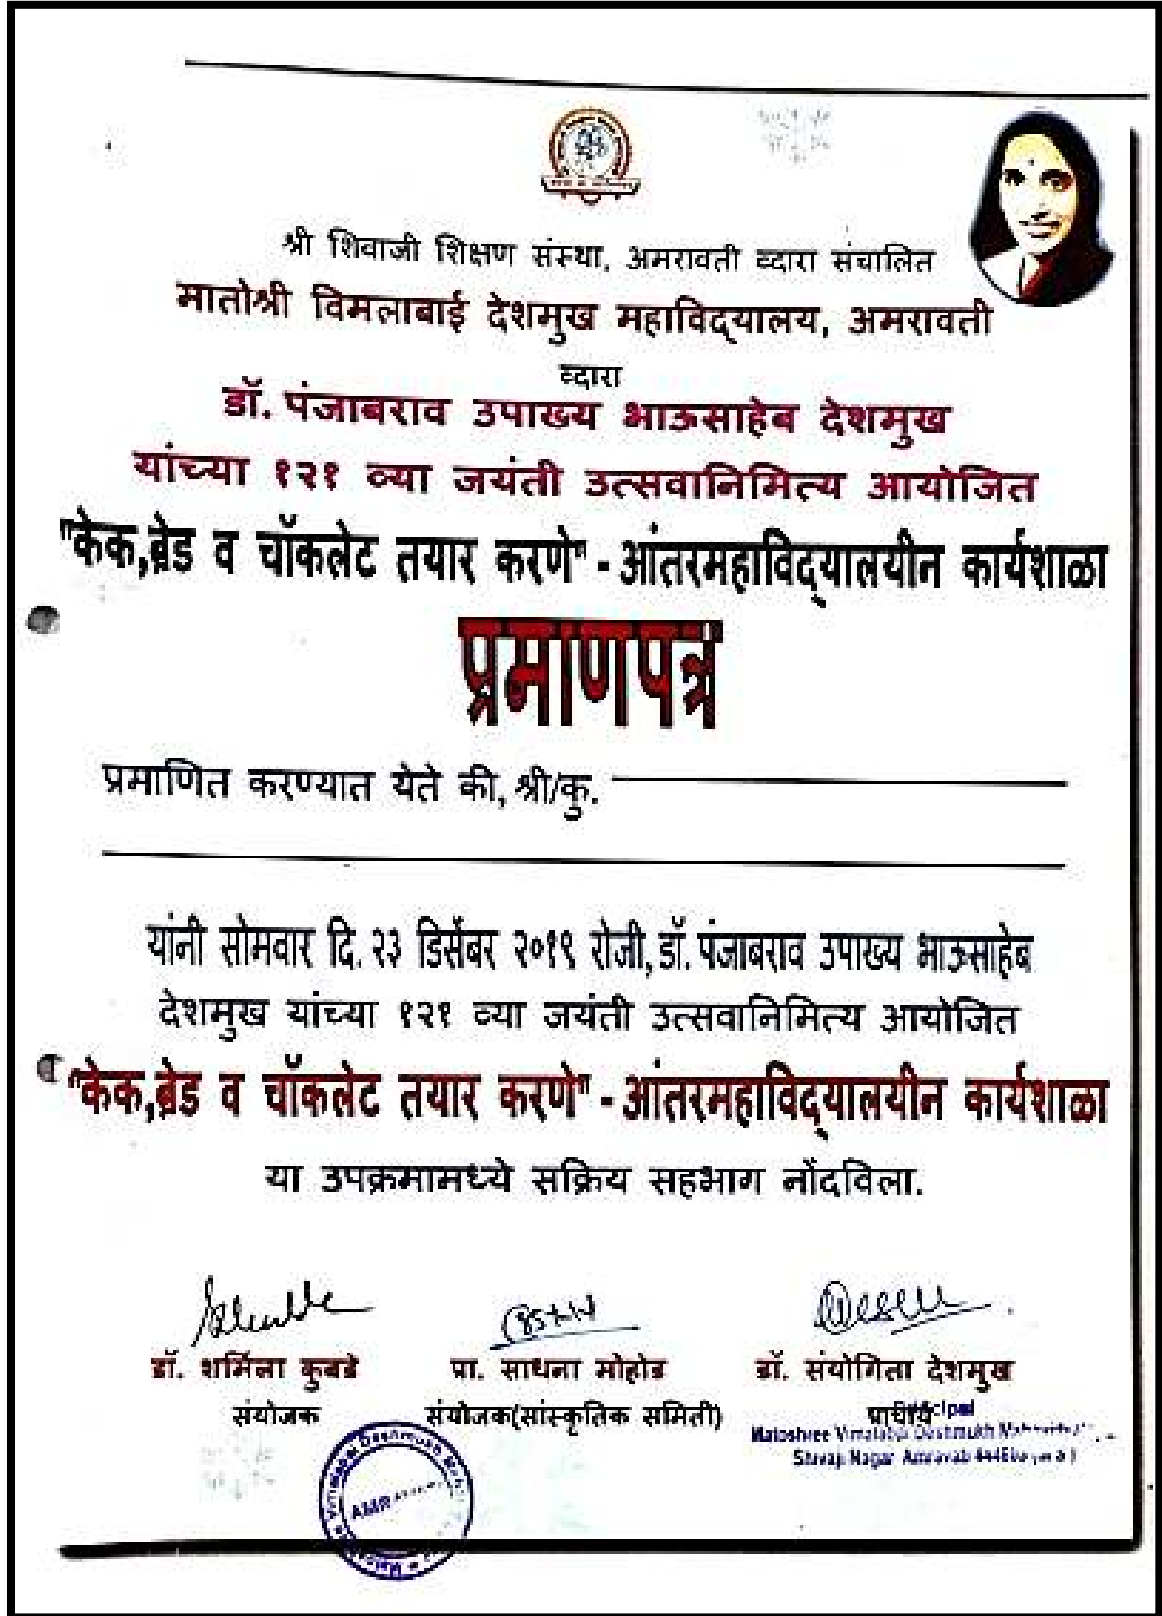 श्री शिवाजी शिक्षण संस्था, अमरावती व्दारा संचालित
मातोश्री विमलाबाई देशमुख महाविद्‌यालय, अमरावती
व्दारा
डॉ. पंजाबराव उपाख्य भाऊसाहेब देशमुख
यांच्या १२१ व्या जयंती उत्सवानिमित्य आयोजित
"केक,ब्रेड व चॉकलेट तयार करणे" - आंतरमहाविद्‌यालयीन कार्यशाळा
प्रमाणपत्र
प्रमाणित करण्यात येते की, श्री/कु.
यांनी सोमवार दि. २३ डिसेंबर २०१९ रोजी, डॉ. पंजाबराव उपाख्य भाऊसाहेब
देशमुख यांच्या १२१ व्या जयंती उत्सवानिमित्य आयोजित
"केक,ब्रेड व चॉकलेट तयार करणे" - आंतरमहाविद्‌यालयीन कार्यशाळा
या उपक्रमामध्ये सक्रिय सहभाग नोंदविला.
डॉ. शर्मिला कुबडे प्रा. साधना मोहोड डॉ. संयोगिता देशमुख
संयोजक संयोजक(सांस्कृतिक समिती) प्राचार्य
Principal
Matoshree Vimalabai Deshmukh
Shivaji Nagar Amravati
Vimalabai Deshmukh